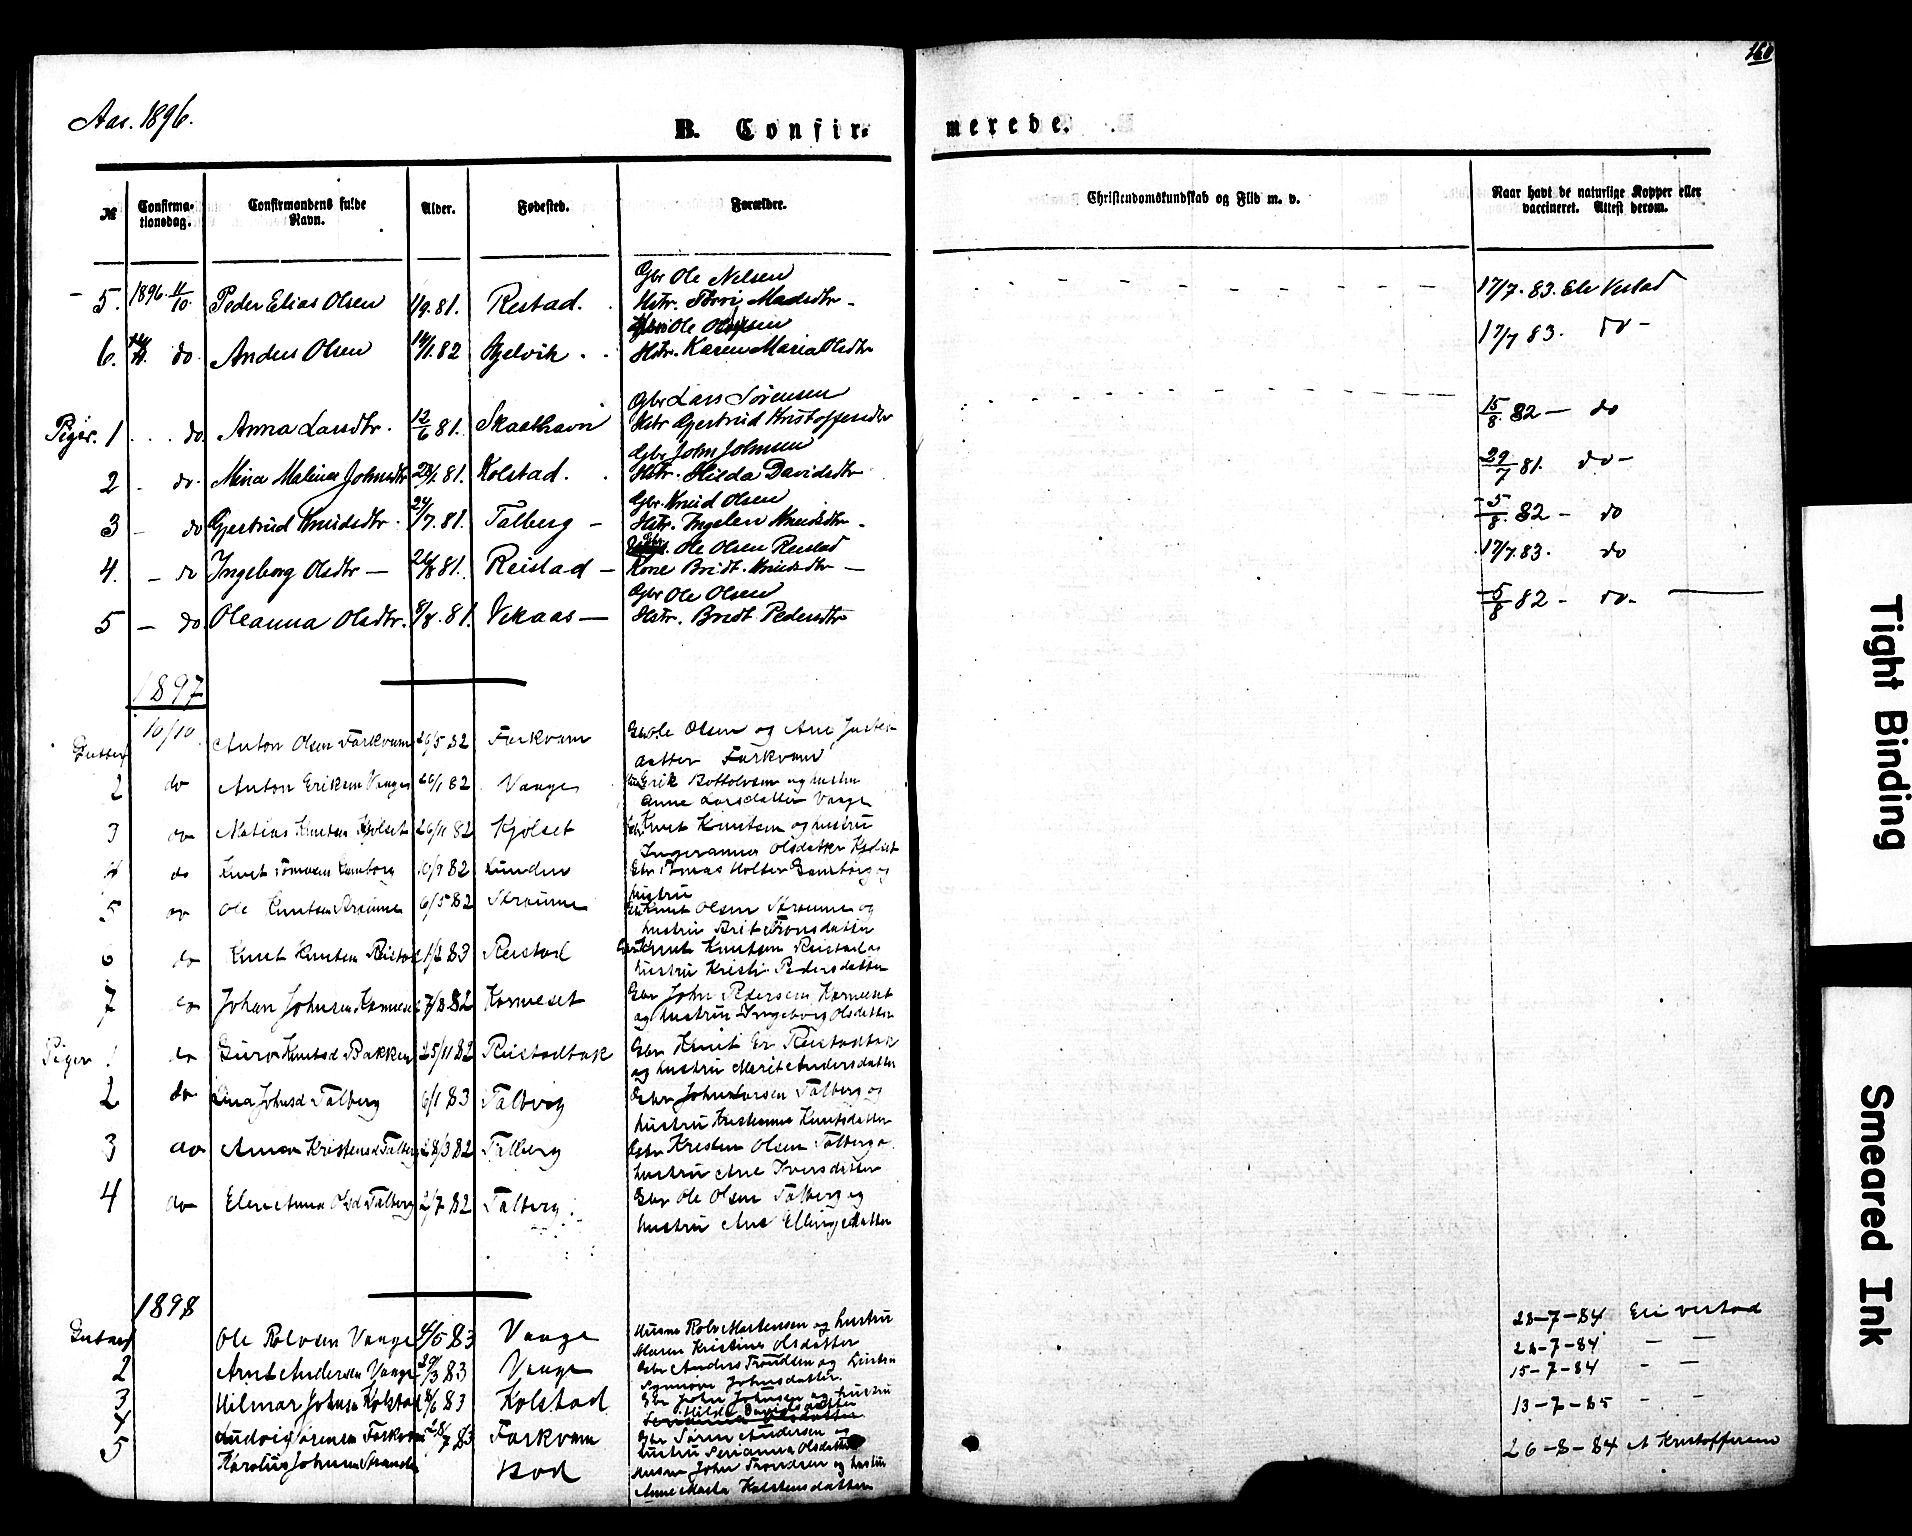 Aar. 1896.
168
B. Confirmerede.
№
Confirmationsdag.
Confirmandens fulde Navn.
Alder.
Fødested.
Forældre.
Christendomskundskab og Flid m. v.
Naar havt de naturlige Kopper eller vaccineret. Attest derom.
5. 1896 11/10. Peder Elias Olsen 1/9.81. Reistad. Gbr Ole Nelsen 17/7.83. Eli Vestad
Hstr. Madsdtr
6. do Anders Olsen 14/1.82 Gjelvik Ole Olsen 17/7 83. do
Hstr. Karen Maria Olsdtr
Piger. 1 do Anna Larsdtr. 12/6 81. Skaalhavn Gbr Lars Sørensen 15/8. 82 do
Hstr Gjertrud Kristoffersdtr
2 do Mina Malina Johnsdtr 81. Kolstad. Gbr John Johnsen 29/7 81. do
Hstr. Hilda Davidsdtr
3 do Gjertrud Knudsdtr. 24/7.81. Talberg Gbr. Knud Olsen 5/8. 82 do
Hstr. Ingelen Knudsdtr
4. do Ingeborg Olsdtr 26/8 81. Reistad Gbr. Ole Olsen Reistad 17/7.83. do
Kone Bridt. Knudsdtr
5 do Oleanna Olsdtr. 8/8.81. Vekaas Gbr Ole Olsen 5/8 82 do
Hstr. Bridt Pedersdtr
1897
Gutter 10/10. Anton Olsen Farkvam 26/5 82 Farkvam Gbr Ole Olsen og Ane
datter Farkvam
2 do Anton Eriksen Vaage 26/1 82 Vaage Erik Bottolvsen og hustru
Anne Larsdatter Vaage
3 do Matias Knutsen Kjølset 26/11 82 Kjølset Knut Knutsen og hustru
Ingeranna Olsdatter Kjølset
4 do Knut 10/9 82 Lunden Gbr Tomas Holter og
hustru
5 do Ole Knutsen Straume 6/5 82 Straume Gbr Knut Olsen Straume og
hustru Brit Tronsdatter
6 do Knut Knutsen Reistad 83 Reistad Gbr Knut Knutsen Reistad og
hustru Kristi Pedersdatter
7 do Johan Johnsen Karneset 7/8 82 Karneset Gbr John Pedersen Karneset
og hustru Ingeborg Olsdatter
Piger 1 do Guro Knutsd Bakken 25/11 82 Reistadbak Gbr Knut Er Reistadbak
og hustru Marit Andersdatter
2 do Lina Johnsd Talberg 6/1 83 Talberg Gbr John Larsen Talberg og
hustru Kristianna Knutsdatter
3 do Anna Kristensd Talberg 28/3 82 Talberg Gbr Kristen Olsen Talberg o
hustru Ane Iversdatter
4 do Elen Anna Olsd Talberg 2/7 82 Talberg Gbr Ole Olsen Talberg og
hustru Ane Ellingsdatter
1898
Gutter Ole Rolvsen Vaage 4/5 83 Vaage Husm Rolv Mortensen og hustru 28-7-84 Eli Vestad
Maren Kristine Olsdatter
2 Arnt Andersen Vaage 29/3 83 Vaage Gbr Anders Trondsen og hustru 28-7-84
Synnøve Johnsdatter 15-7-84
3 Hilmar Johnsen Kolstad 8/6 83 Kolstad Gbr John Johnsen og hustru 13-7-85
Hilda Davidsdatter
4 Ludvig Sørensen Farkvam 28/7 83 Farkvam Gbr Søren Andersen og
hustru Serianna Olsdatter 26-8-84 A Kristoffersen
5 Karolius Johnsen Strande Bod Husm John Trondsen og hustru
Anne Marta Kristensdatter
Tight Binding
Smeared Ink